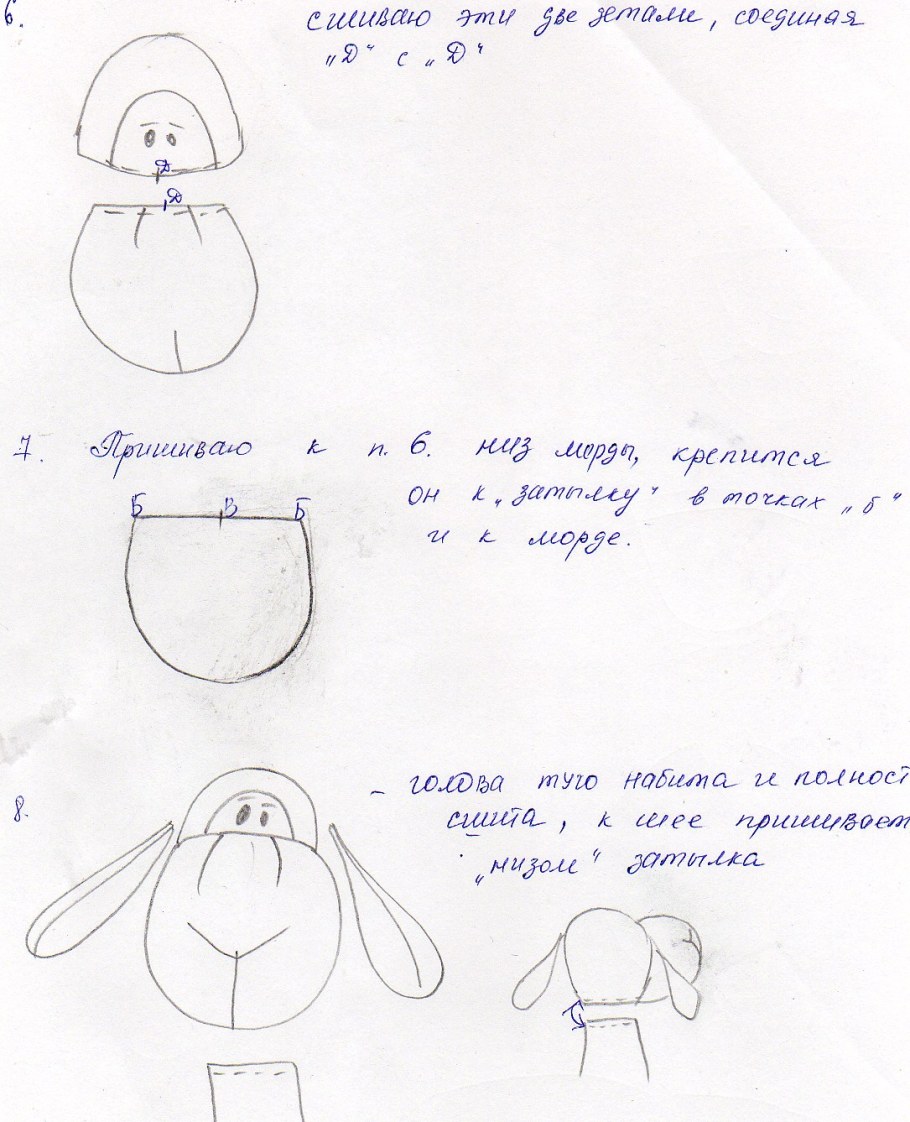 6.
сшиваю эти две детали, соединая
„Д“ с „Д“
Д
Д
7. Пришиваю к п. 6. низ морды, крепится
он к „затылку“ в точках „б“
и к морде.
Б В Б
8.
– голова туго набита и полност
сшита, к шее пришивает
„низом“ затылка